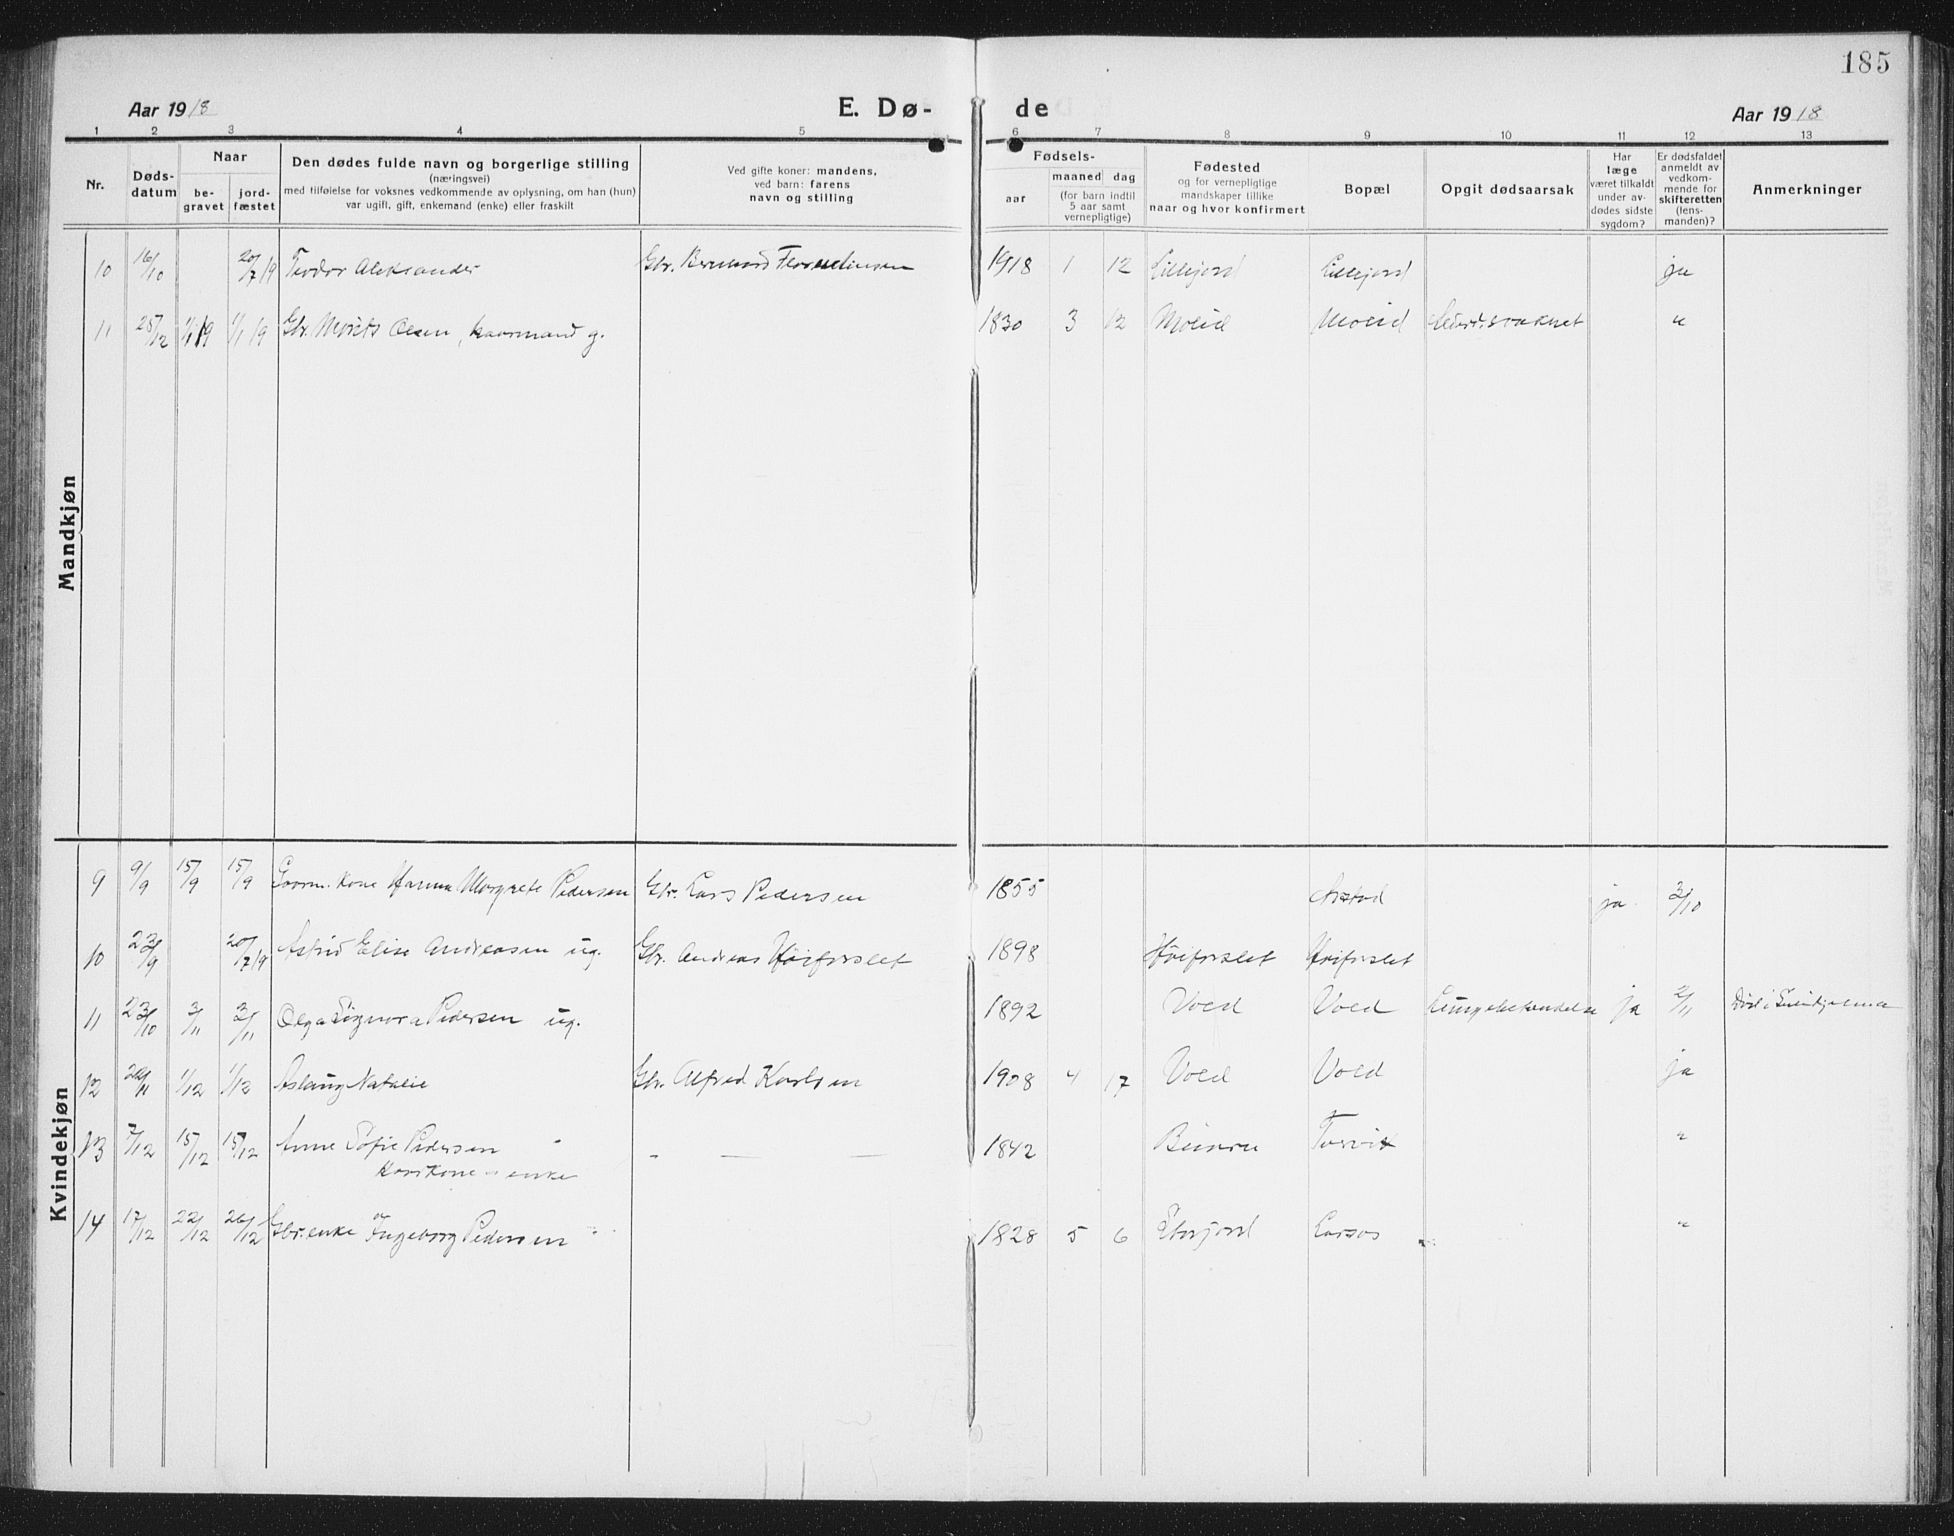 185
Aar 1918
E. Dø-
de
Aar 1918
1 2 3 4 5 6 7 8 9 10 11 12 13
Nr.
Døds-
datum
Naar
be-
gravet
jord-
fæstet
Den dødes fulde navn og borgerlige stilling
(næringsvei)
med tilføielse for voksnes vedkommende av oplysning, om han (hun)
var ugift, gift, enkemand (enke) eller fraskilt
Ved gifte koner: mandens,
ved barn: farens
navn og stilling
Fødsels-
aar
maaned dag
(for barn indtil
5 aar samt
vernepligtige)
Fødested
og for vernepligtige
mandskaper tillike
naar og hvor konfirmert
Bopæl
Opgit dødsaarsak
Har
læge
været tilkaldt
under av-
dødes sidste
sygdom?
Er dødsfaldet
anmeldt av
vedkom-
mende for
skifteretten
(lens-
manden)?
Anmerkninger
Mandkjøn
10 16/10 20/7 19 Teodor Aleksander Gbr. Bernhard 1918 1 12 Lillejord Lillejord ja
11 28/12 1/1 19 1/1 19 Gbr. Morits Olsen, kaarmand g. 1830 3 12 Moeid Moeid "
Kvindekjøn
9 9/9 15/9 15/9 Kaarm. kone Hanna Margrete Pedersen Gbr. Lars Pedersen 1855 Arstad ja 3/10
10 23/9 20/7 19 Astrid Elise Andreasen ug. Gbr. Andreas Høiforslet 1898 Høiforslet Høiforslet
11 23/10 3/11 3/11 Olga Signora Pedersen ug. 1892 Vold Vold Lungebetændelse ja 2/11 Død i
12 1/12 1/12 Aslaug Natalie Gbr. Alfred Karlsen 1908 4 17 Vold Vold ja
13 7/12 15/12 15/12 Anne Sofie Pedersen " - — — 1842 Beiarn Torvik "
Kaarkone - enke
14 17/12 22/12 26/12 Gbr. enke Ingeborg Pedersen 1828 5 6 Storjord Larsos "